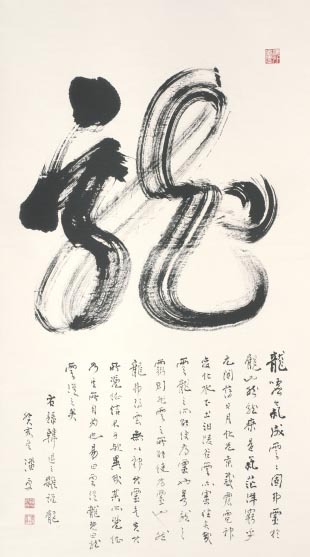 龍
龍噓氣成雲雲固弗靈於
龍也然龍乘是氣茫洋窮乎
玄間薄日月伏光景感震電神
變化水下土汩陵谷雲亦靈怪矣哉
雲龍之所能使為靈也若龍之
靈則非雲之所能使為靈也然
龍弗得雲無以神其靈矣失其
所憑依信不可歟異哉其所憑依
乃其所自為也易曰雲從龍既曰龍
雲從之矣
右錄韓退之雜說龍
癸亥冬潘